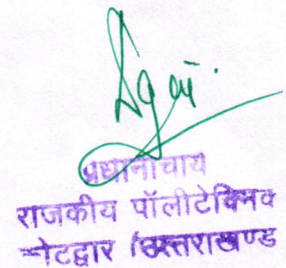 प्रधानाचार्य
राजकीय पॉलीटेक्निक
कोटद्वार (उत्तराखण्ड